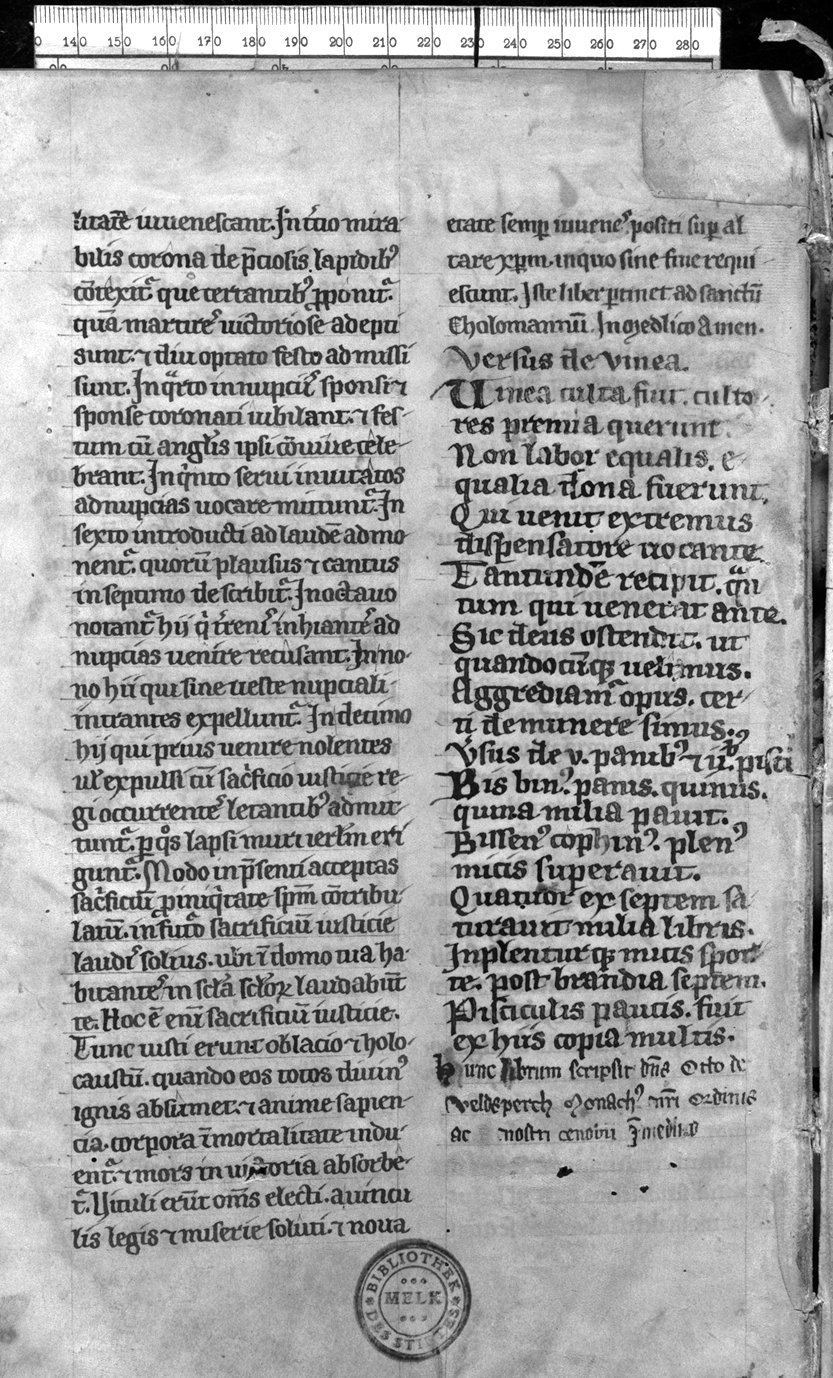 0 140 150 160 170 180 190 200 210 220 230 240 250 260 270 280
litatē iuuenescant. In t͛cio mira
bilis corona de p̄ciosis lapidibꝰ
cōtexit᷑ que certantibꝰ ꝓponit᷑.
quā martireſ uictorioſe adepti
sunt. ⁊ diu optato festo admissi
sunt. In qͣrto in nupciiſ sponsi ⁊
sponse coronati iubilant. ⁊ fes
tum cū anglis ipsi cōuiue cele
brant. In qͥnto serui inuitatos
ad nupcias uocare mittunt᷑. In
sexto introducti ad laudē admo
nent᷑. quorū plausus ⁊ cantus
in septimo describit᷑. In octauo
notant᷑ hij qͥ t͛reniſ inhianteſ ad
nupcias uenire recusant. In no
no hii qui sine ueste nupciali
intrantes expellunt᷑. In decimo
hij qui prius uenire nolentes
ul̄ expulsi cū sac͛ficio iusticie re
gi occurrenteſ letantibꝰ admit
tunt᷑. ꝑ qͦs lapsi muri ierl̄m eri
gunt᷑. Modo in p̄senti acceptas
sac͛ficiū ꝓ iniqͥtate spm̄ cōtribu
latū. in fut᷑o sacrificiū iusticie
laudiſ solius. ubi ī domo tua ha
bitanteſ in scl̄a scl̄oꝝ laudabūt
te. Hoc ē eni᷑ sacrificiū iusticie.
Tunc iusti erunt oblacio ⁊ holo
caustū. quando eos totos diuinꝰ
ignis absumet. ⁊ anime sapien
cia. corpora īmortalitate indu
ent᷑. ⁊ mors in uictoria absorbe
t᷑. Uituli erūt om̄s electi. a uincu
lis legis ⁊ miserie soluti. ⁊ noua
etate semꝑ iuueneſ positi suꝑ al
tare xp̄m. in quo sine fine requi
escunt. Iste liber ꝑtinet ad sanctū
Cholomannū. In Medlico Amen.
Versus de vinea.
Uinea culta fuit. culto
res premia querunt.
Non labor equalis. e
qualia dona fuerunt.
Qui uenit extremus
dispensatore uocante
Tantundē recipit. qͣn
tum qui uenerat ante.
Sic deus ostendit. ut
quandocūqꝫ uelimus.
Aggrediam᷑ opus. cer
ti de munere simus.
Vsus de v. panibꝰ ⁊ ii.bꝰ pisci
Bis binꝰ. panis. quinus.
quina milia pauit.
Bissenꝰ cophinꝰ. plenꝰ
micis superauit.
Quatuor ex septem sa
turauit milia libris.
Inplenturqꝫ micis spor
te. post brandia septem.
Pisciculis paucis. fuit
ex hiis copia multis.
hunc librum scripsit dn̄s Otto de
Veldsperch Monachꝰ nr̄i Ordinis
ac nostri cenobii
BIBLIOTHEK DES STIFTES
MELK